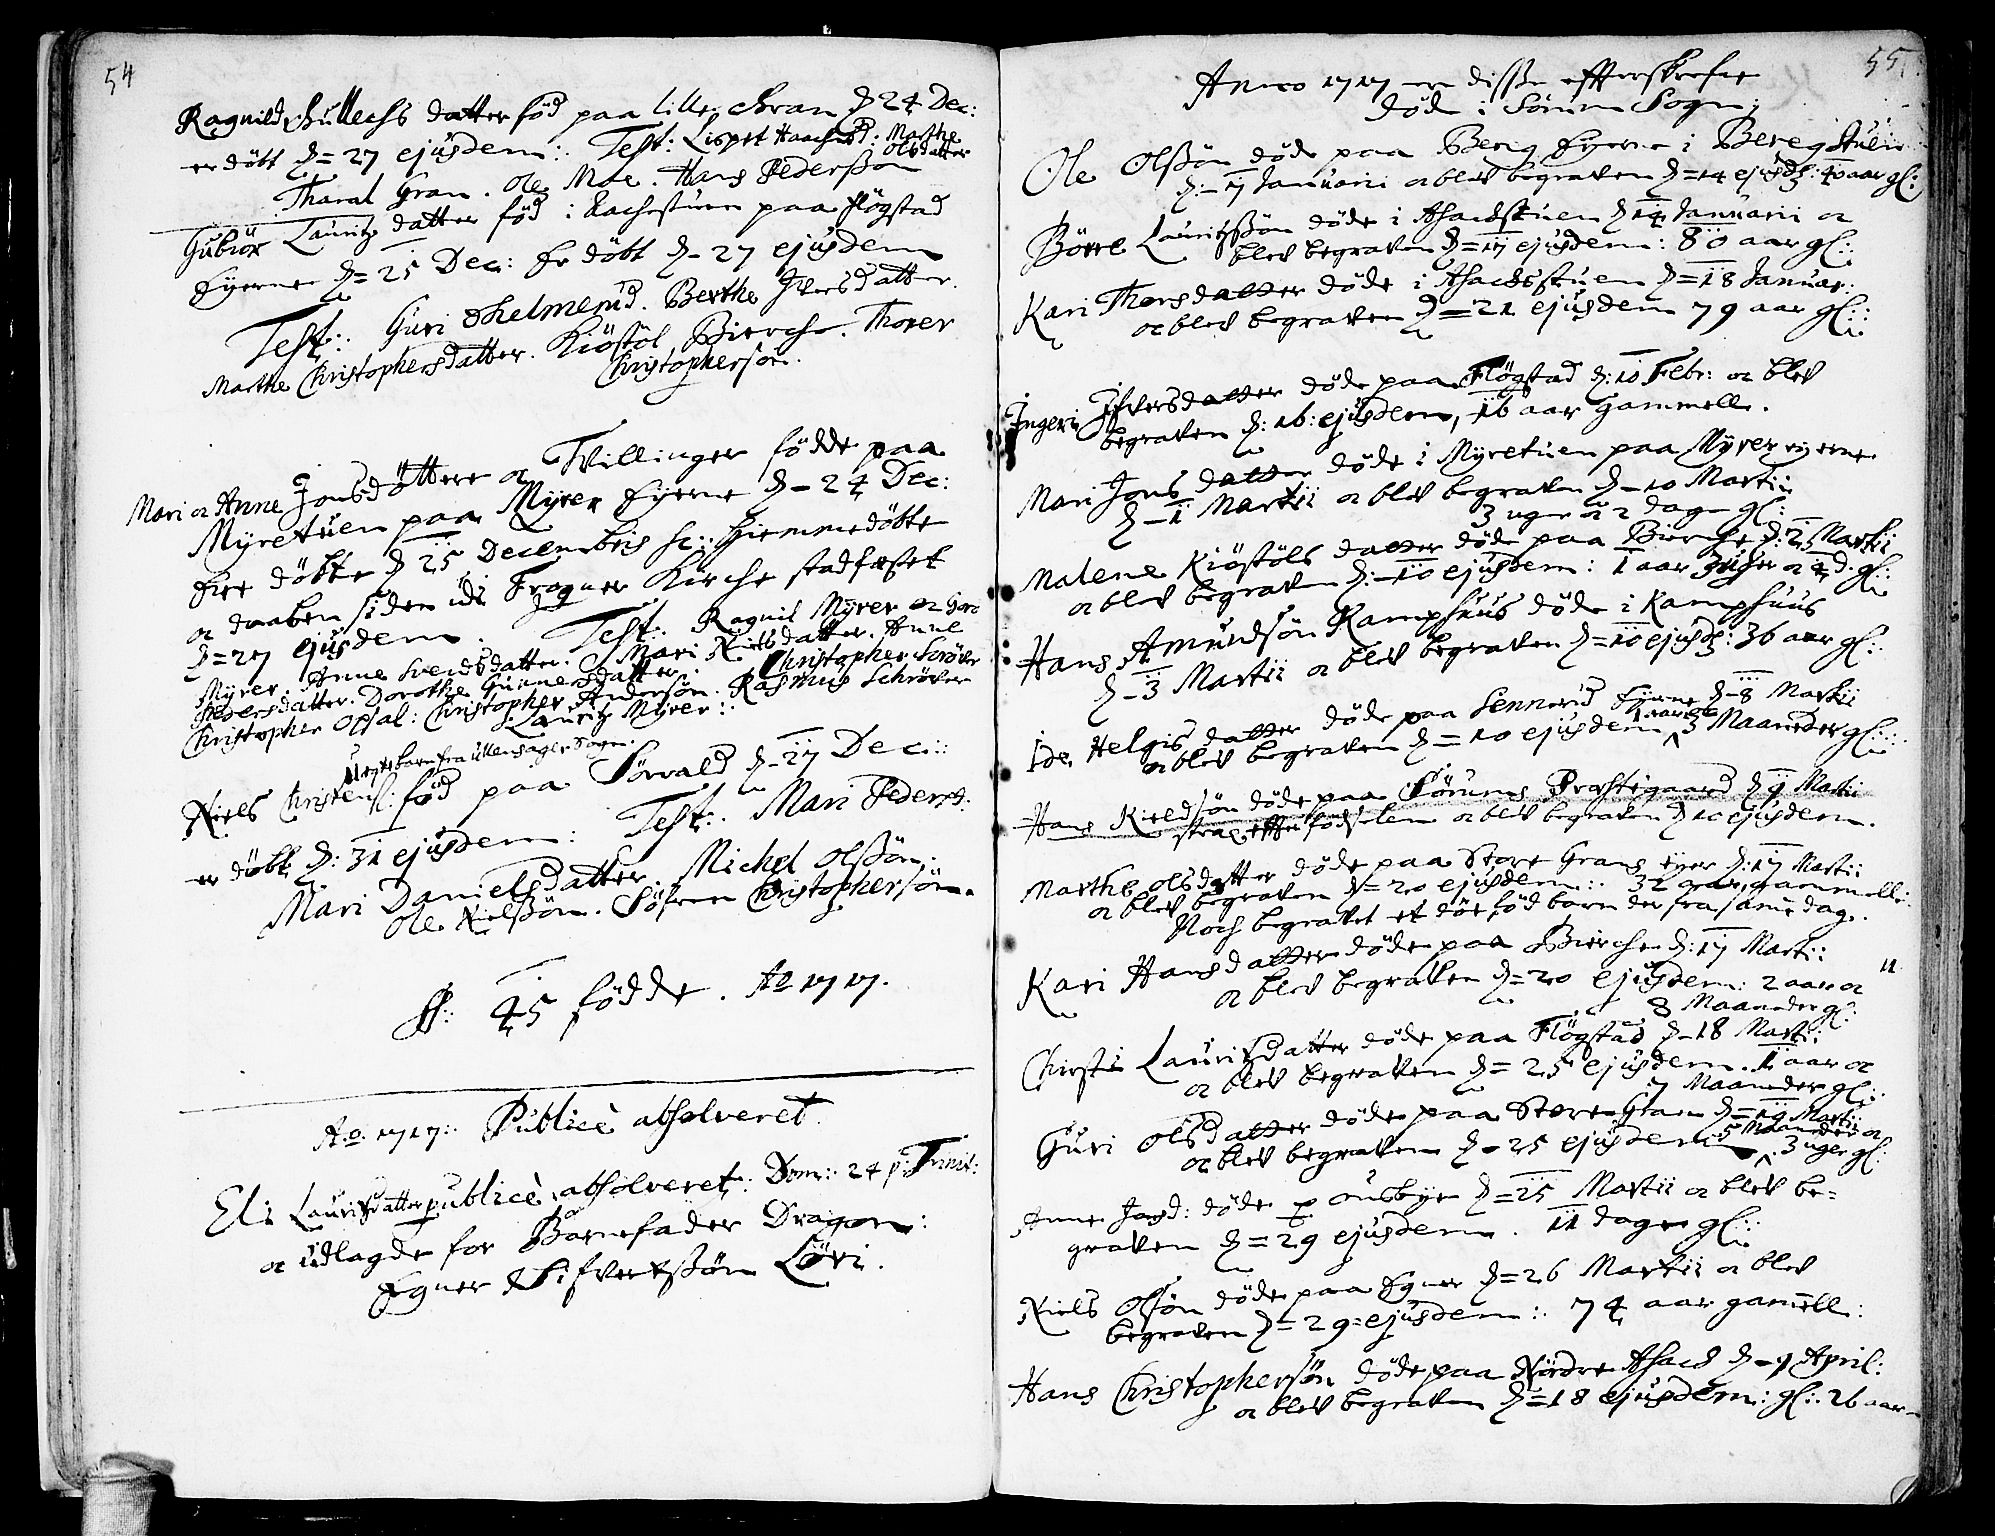 54
Ragnild Gullechs datter fød paa lille Gran d 24 Dec:
er døbt d= 27 ejusdem: Test: Lispet Haachsd: Marthe Olsdatter
Tharal Gran. Ole Moe. Hans Pederssøn
Gubiør Lauritz datter fød i Bachestuen paa Fløgstad
Eyerne d= 25 Dec: Er døbt d- 27 ejusdem
Test: Guri Shelmerud. Berthe Iversdatter.
Marthe Christophersdatter. Kiøstol Bierche. Thorer
Christophersøn.
Mari oc Anne Jonsdøttere oc Tvillinger fødde paa
Myrestuen paa Myrer Eyerne d- 24 Dec:
Ere døbte d 25 Decembris sc: hiemmedøbte
oc daaben siden udi Frogner Kirche stadfestet
d= 27 ejusdem. Test: Ragnil Myrer oc
Myrer. Anne Svendsdatter. Mari Nielsdatter. Anne
Pedersdatter. Dorothe Gunnersdatter. Christopher Schrøder
Christopher Opsal: Christopher Andersøn. Rasmus Schrøder
Lauritz Myrer:
Uegte barn fra Ullensager Sogn.
Niels Christens: fød paa Sørvald d- 27 Dec::
er døbt d: 31 ejusdem: Test: Mari Pedersd:
Mari Danielsdatter. Michel Olssøn.
Ole Nielssøn. Søfren Christophersøn.
S: 45 fødde. Ao 1717.
Ao. 1717: Publicè absolveret.
Eli Lauritzdatter publicè absolveret: Dom: 24 p: Trinit:
oc udlagde for Barnefader Dragon:
Egner Sifvertssøn Løri.
55
Anno 1717 er disse effterskrefne
døde i Sørum Sogn.
Ole Olssøn døde paa Berg Eyerne i Beregstuen
d:-7 Januarii oc blev begraven d=14 ejusd: 40 aar gl:
Børre Lauritzssøn døde i Asachstuen d 14 Januarii oc
blev begraven d=17 ejusdem: 80 aar gl:
Kari Thorsdatter døde i Asachstuen d=18 Januar:
oc blev begraven d=21 ejusdem 79 aar gl::
Ingeri Ifversdatter døde paa Fløgstad d:10 Febr: oc blev
begraven d:16: ejusdem, 16 aar gammell.
Mari Jons datter døde i Myrestuen paa Myrer eyerne
d-1 Martii oc blev begraven d-10 Martii
3 uger oc 2 dage gl:
Malene Kiøstols datter døde paa Bierche d:2 Martii
oc blev begraven d:-10 ejusdem: 1 aar 3 uger oc 4 d. gl::
Hans Amundsøn Kamphuus døde i Kamphuus
d-3 Martii oc blev begraven d=10 ejusd: 36 aar gl::
Ide Helgis datter døde paa Sennerud Eyerne d-8 Martii
oc blev begraven d=10 ejusdem 1 aar oc 3 Maaneder gl::
Hans Kieldsøn døde paa Sørums Præstegaard d 9 Martii
strax efter fødselen oc blev begraven d 10 ejusdem.
Marthe Olsdatter døde paa Store Grans eyer d:17 Martii
oc blev begraven d=20 ejusdem: 32 aar gammell:
Noch begravet et død fød barn der fra samme dag.
Kari Hansdatter døde paa Bierche d:17 Martii:
oc blev begraven d=20 ejusdem: 2 aar oc
8 Maaneder gl:
Chirsti Lauritzdatter døde paa Fløgstad d-18 Martii
oc blev begraven d=25 ejusdem. 1 aar oc
7 Maaneder gl:
Guri Olsdatter døde paa Store Gran d=19 Martii
oc blev begraven d-25 ejusdem 5 Maaneder oc
3 uger gl:
Anne Jonsd: døde p Ousbye d=25 Martii oc blev be=
graven d=29 ejusdem. 11 dage gl::
Niels Olsøn døde paa Egner d=26 Martii oc blev
begraven d=29=ejusdem: 74 aar gamell:
Hans Christophersøn døde paa Nordre Asach d-9 April:
oc blev begraven d=18 ejusdem: gl: 26 aar